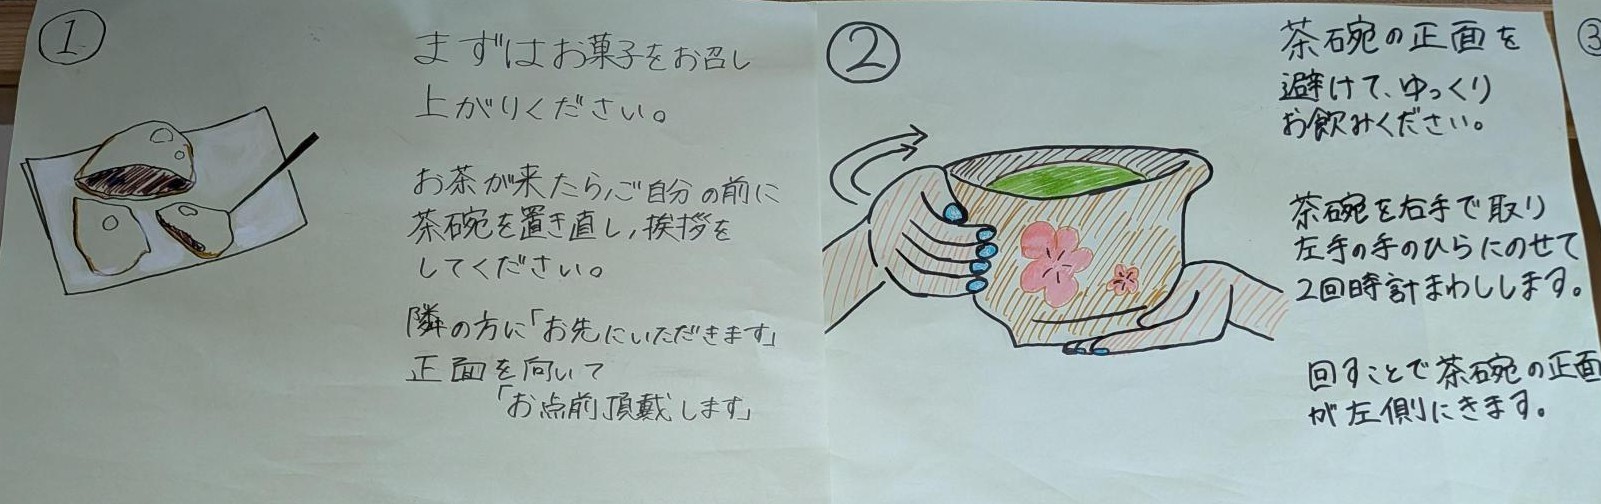 ①
まずはお菓子をお召し
上がりください。
お茶が来たら、ご自分の前に
茶碗を置き直し、挨拶を
してください。
隣の方に「お先にいただきます」
正面を向いて
「お点前頂戴します」
②
茶碗の正面を
避けて、ゆっくり
お飲みください。
茶碗を右手で取り
左手の手のひらにのせて
2回時計まわしします。
回すことで茶碗の正面
が左側にきます。
③